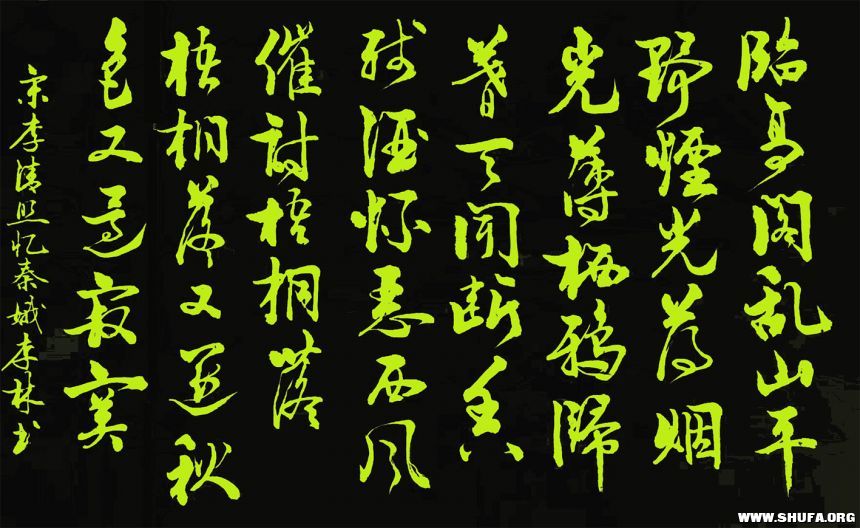 临高阁乱山平
野煙光薄烟
光薄栖鸦歸
暮天闻断香
残酒怀恶西风
催討梧桐落
梧桐落又还秋
色又是寂寞
宋李清照忆秦娥李林书
WWW.SHUFA.ORG